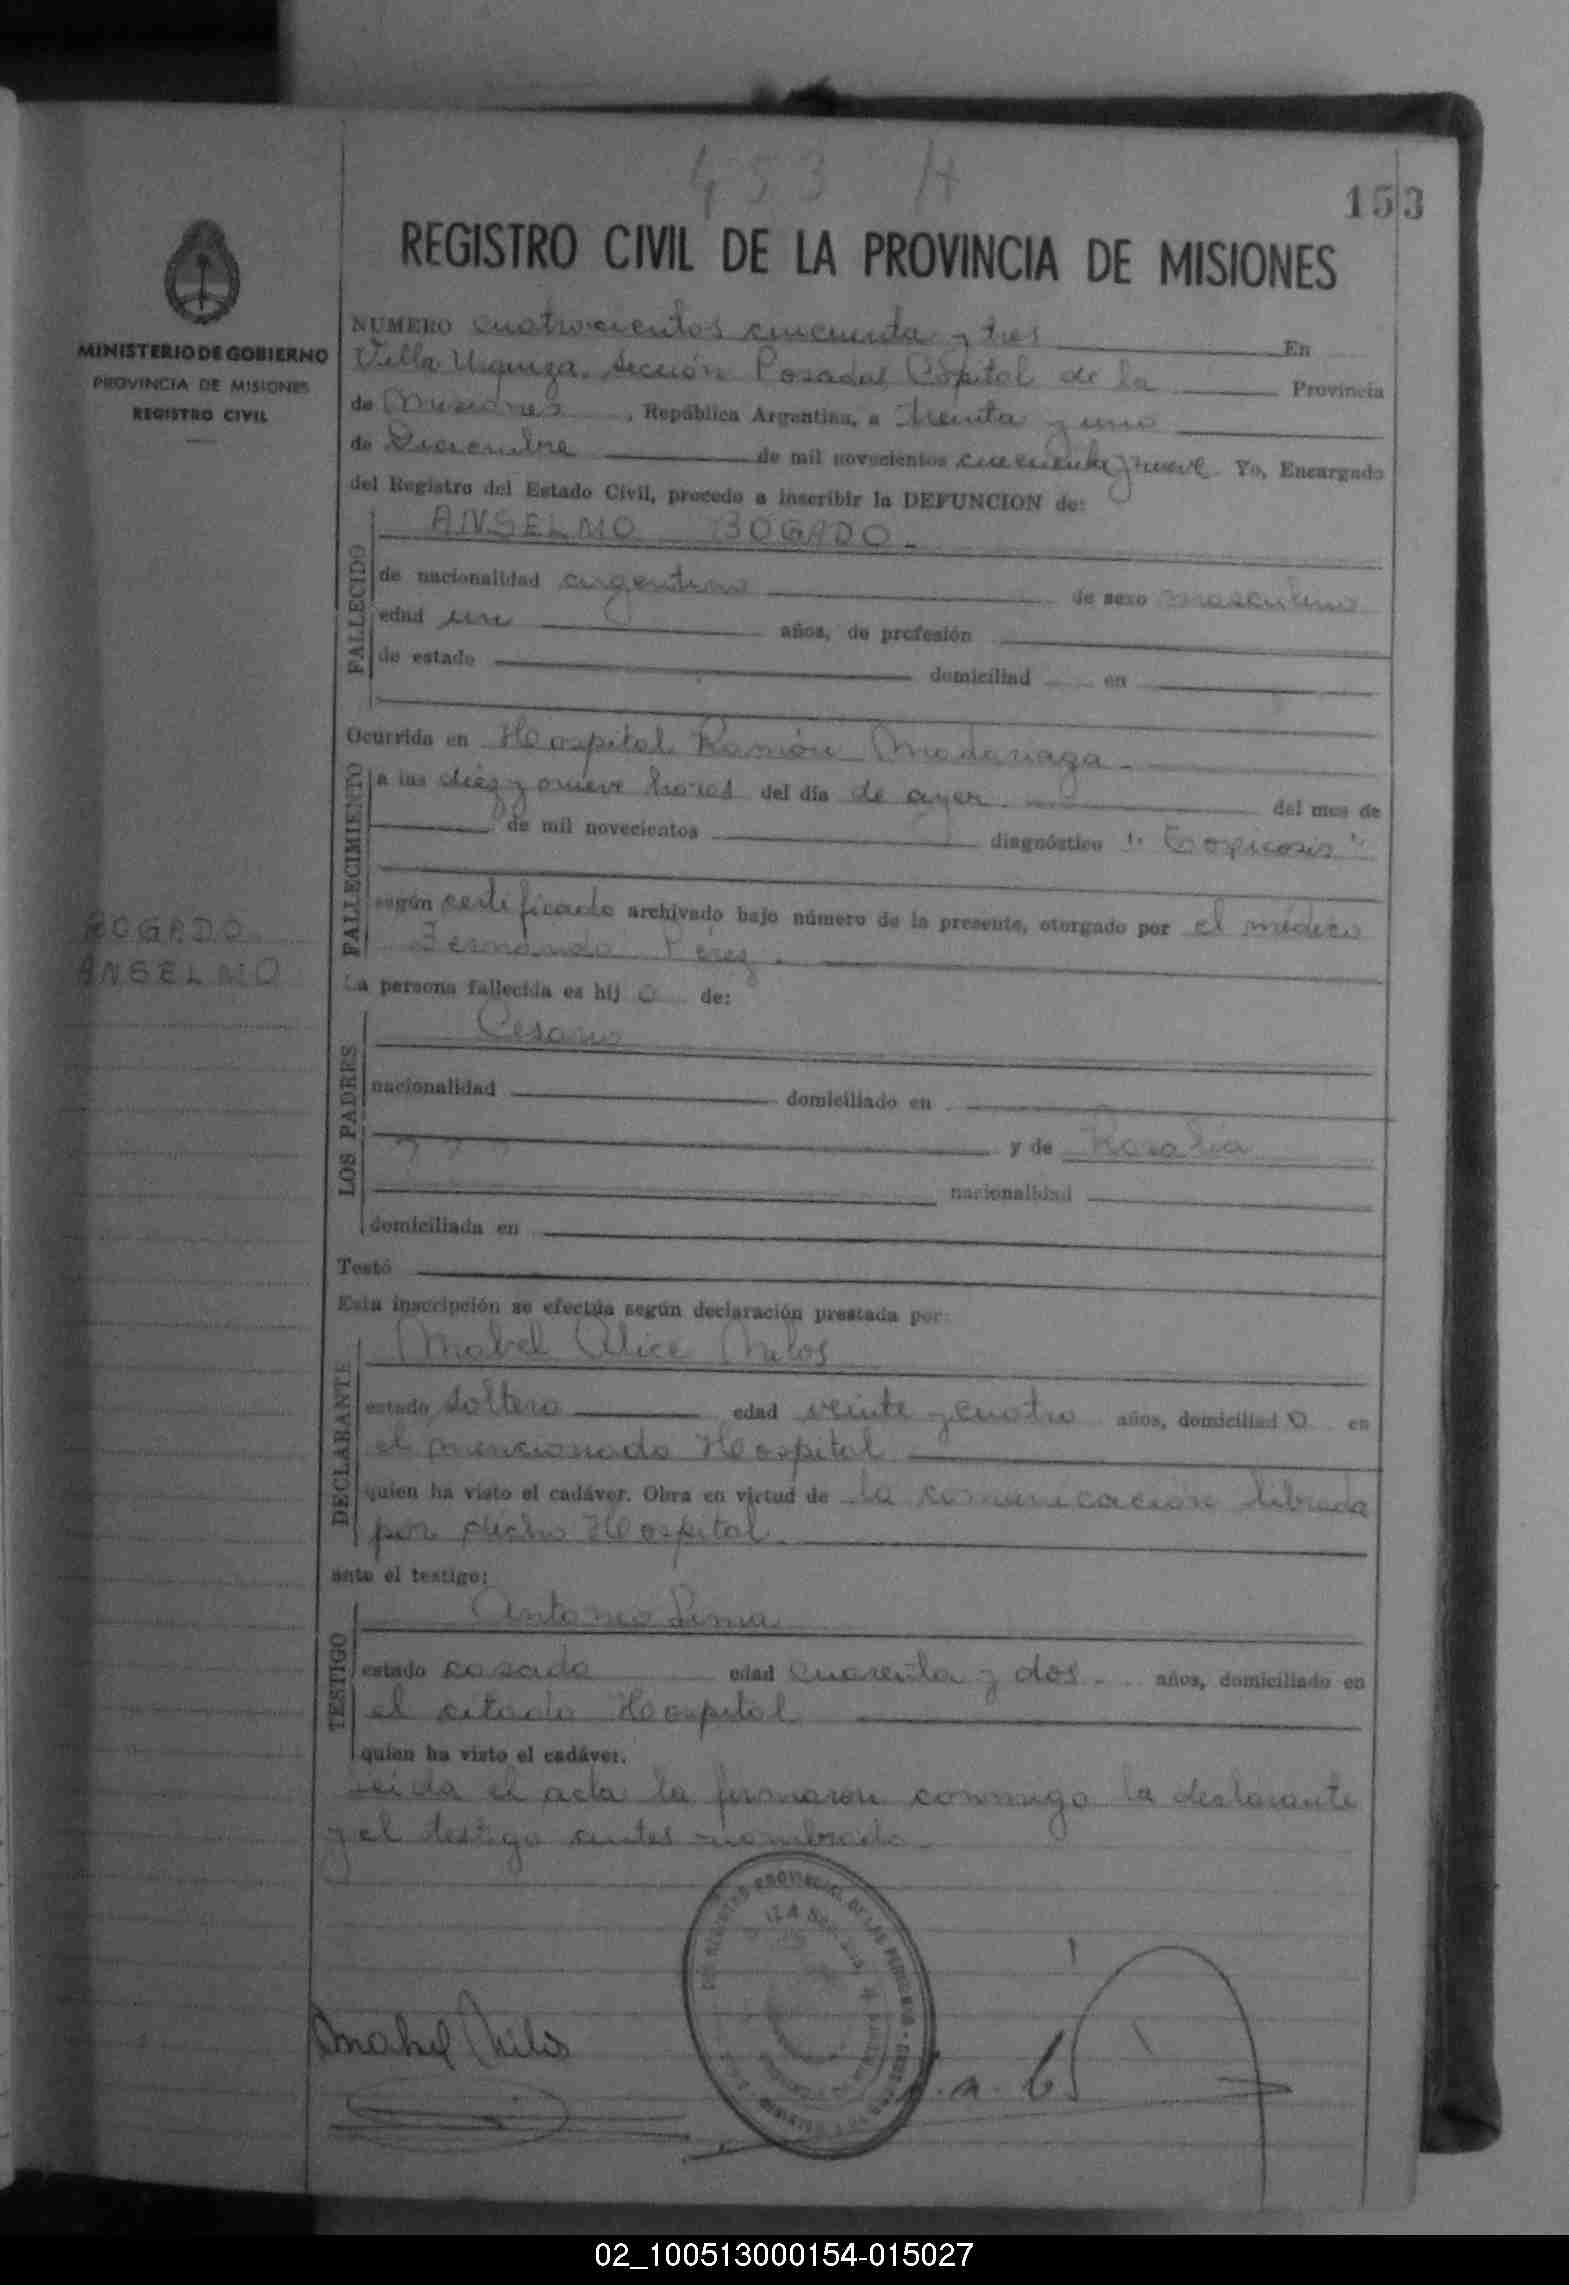 453 H
153
REGISTRO CIVIL DE LA PROVINCIA DE MISIONES
MINISTERIO DE GOBIERNO
PROVINCIA DE MISIONES
REGISTRO CIVIL
NUMERO cuatrocientos cincuenta y tres En
Villa Urquiza, sección Posadas Capital de la Provincia
de Misiones, República Argentina, a treinta y uno
de Diciembre de mil novecientos cincuenta y nueve Yo, Encargado
del Registro del Estado Civil, procedo a inscribir la DEFUNCION de:
ANSELMO BOGADO.-
FALLECIDO
de nacionalidad argentino de sexo masculino
edad un años, de profesión
de estado domiciliad en
Ocurrida en Hospital Ramón Madariaga.-
FALLECIMIENTO
a las diez y nueve horas del día de ayer del mes de
de mil novecientos diagnóstico
según certificado archivado bajo número de la presente, otorgado por el médico
Fernando Perez.
BOGADO
ANSELMO
La persona fallecida es hij o de:
LOS PADRES
Cesario
nacionalidad domiciliado en
y de Rosalia
nacionalidad
domiciliada en
Testó
Esta inscripción se efectúa según declaración prestada por:
DECLARANTE
Mabel Alice
estado soltera edad veinte y cuatro años, domiciliad o en
el mencionado Hospital
quien ha visto el cadáver. Obra en virtud de la comunicación librada
por dicho Hospital.
ante el testigo:
TESTIGO
Antonio Lima
estado casado edad cuarenta y dos años, domiciliado en
el citado Hospital
quien ha visto el cadáver.
Leida el acta la firmaron conmigo la declarante
y el testigo antes nombrado.-
Mabel
02_100513000154-015027